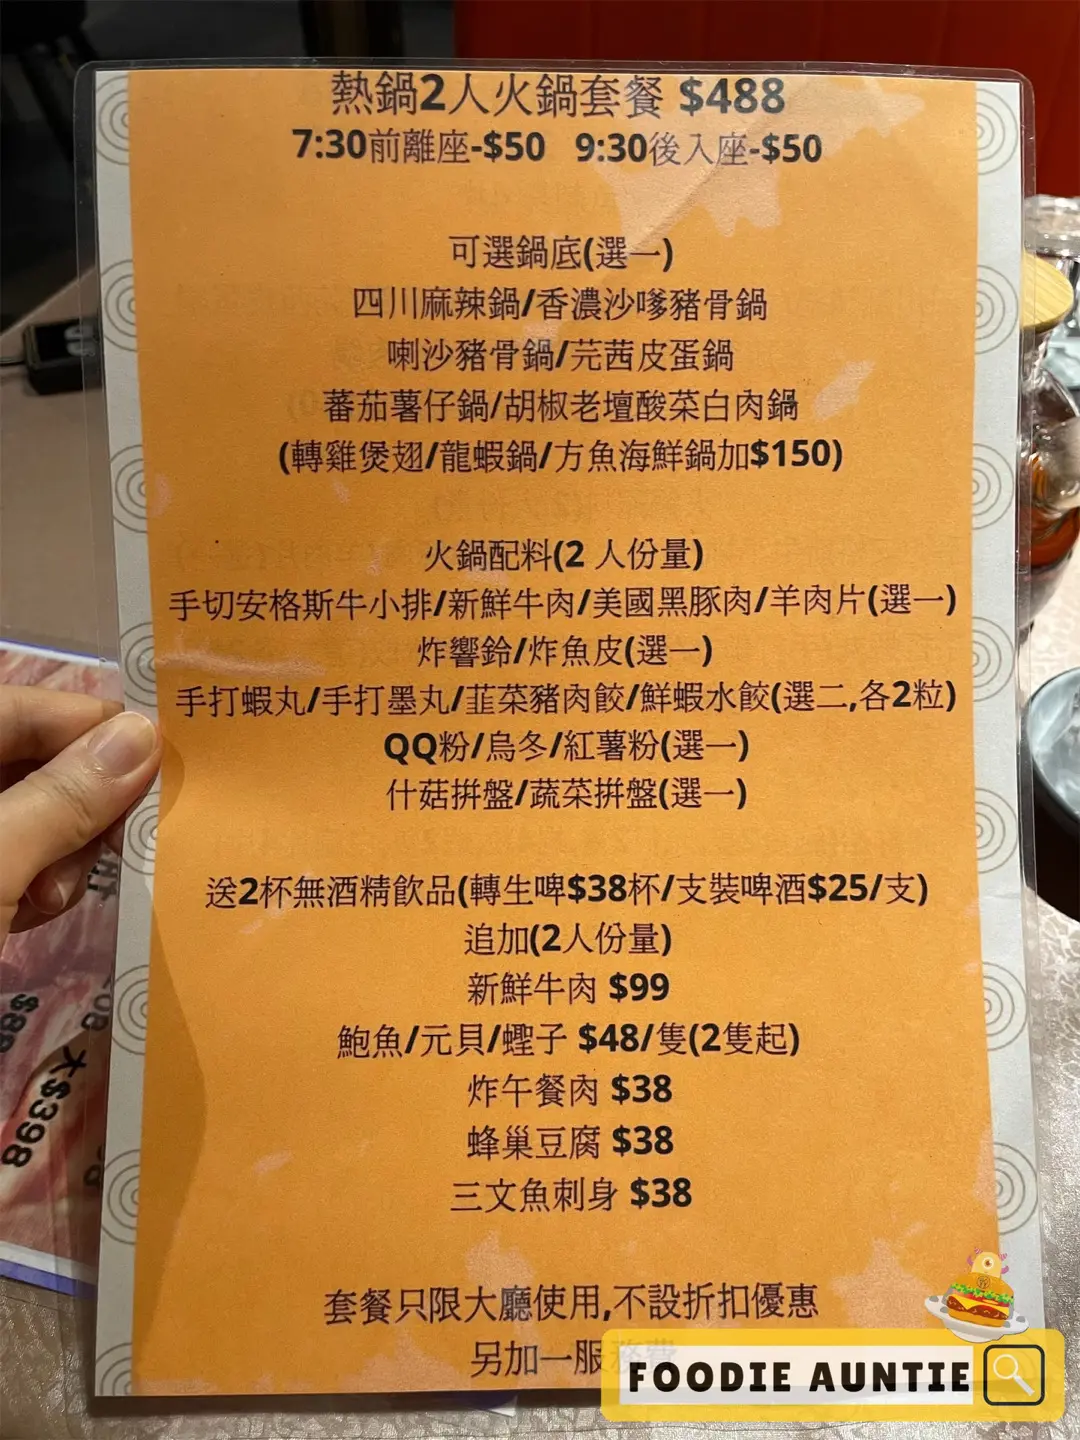 熱鍋2人火鍋套餐 $488
7:30前離座-$50 9:30後入座-$50
可選鍋底(選一)
四川麻辣鍋/香濃沙嗲豬骨鍋
喇沙豬骨鍋/芫茜皮蛋鍋
蕃茄薯仔鍋/胡椒老壇酸菜白肉鍋
(轉雞煲翅/龍蝦鍋/方魚海鮮鍋加$150)
火鍋配料(2 人份量)
手切安格斯牛小排/新鮮牛肉/美國黑豚肉/羊肉片(選一)
炸響鈴/炸魚皮(選一)
手打蝦丸/手打墨丸/韮菜豬肉餃/鮮蝦水餃(選二,各2粒)
QQ粉/烏冬/紅薯粉(選一)
什菇拼盤/蔬菜拼盤(選一)
送2杯無酒精飲品(轉生啤$38杯/支裝啤酒$25/支)
追加(2人份量)
新鮮牛肉 $99
鮑魚/元貝/蟶子 $48/隻(2隻起)
炸午餐肉 $38
蜂巢豆腐 $38
三文魚刺身 $38
套餐只限大廳使用,不設折扣優惠
另加一服務費
大$398
FOODIE AUNTIE